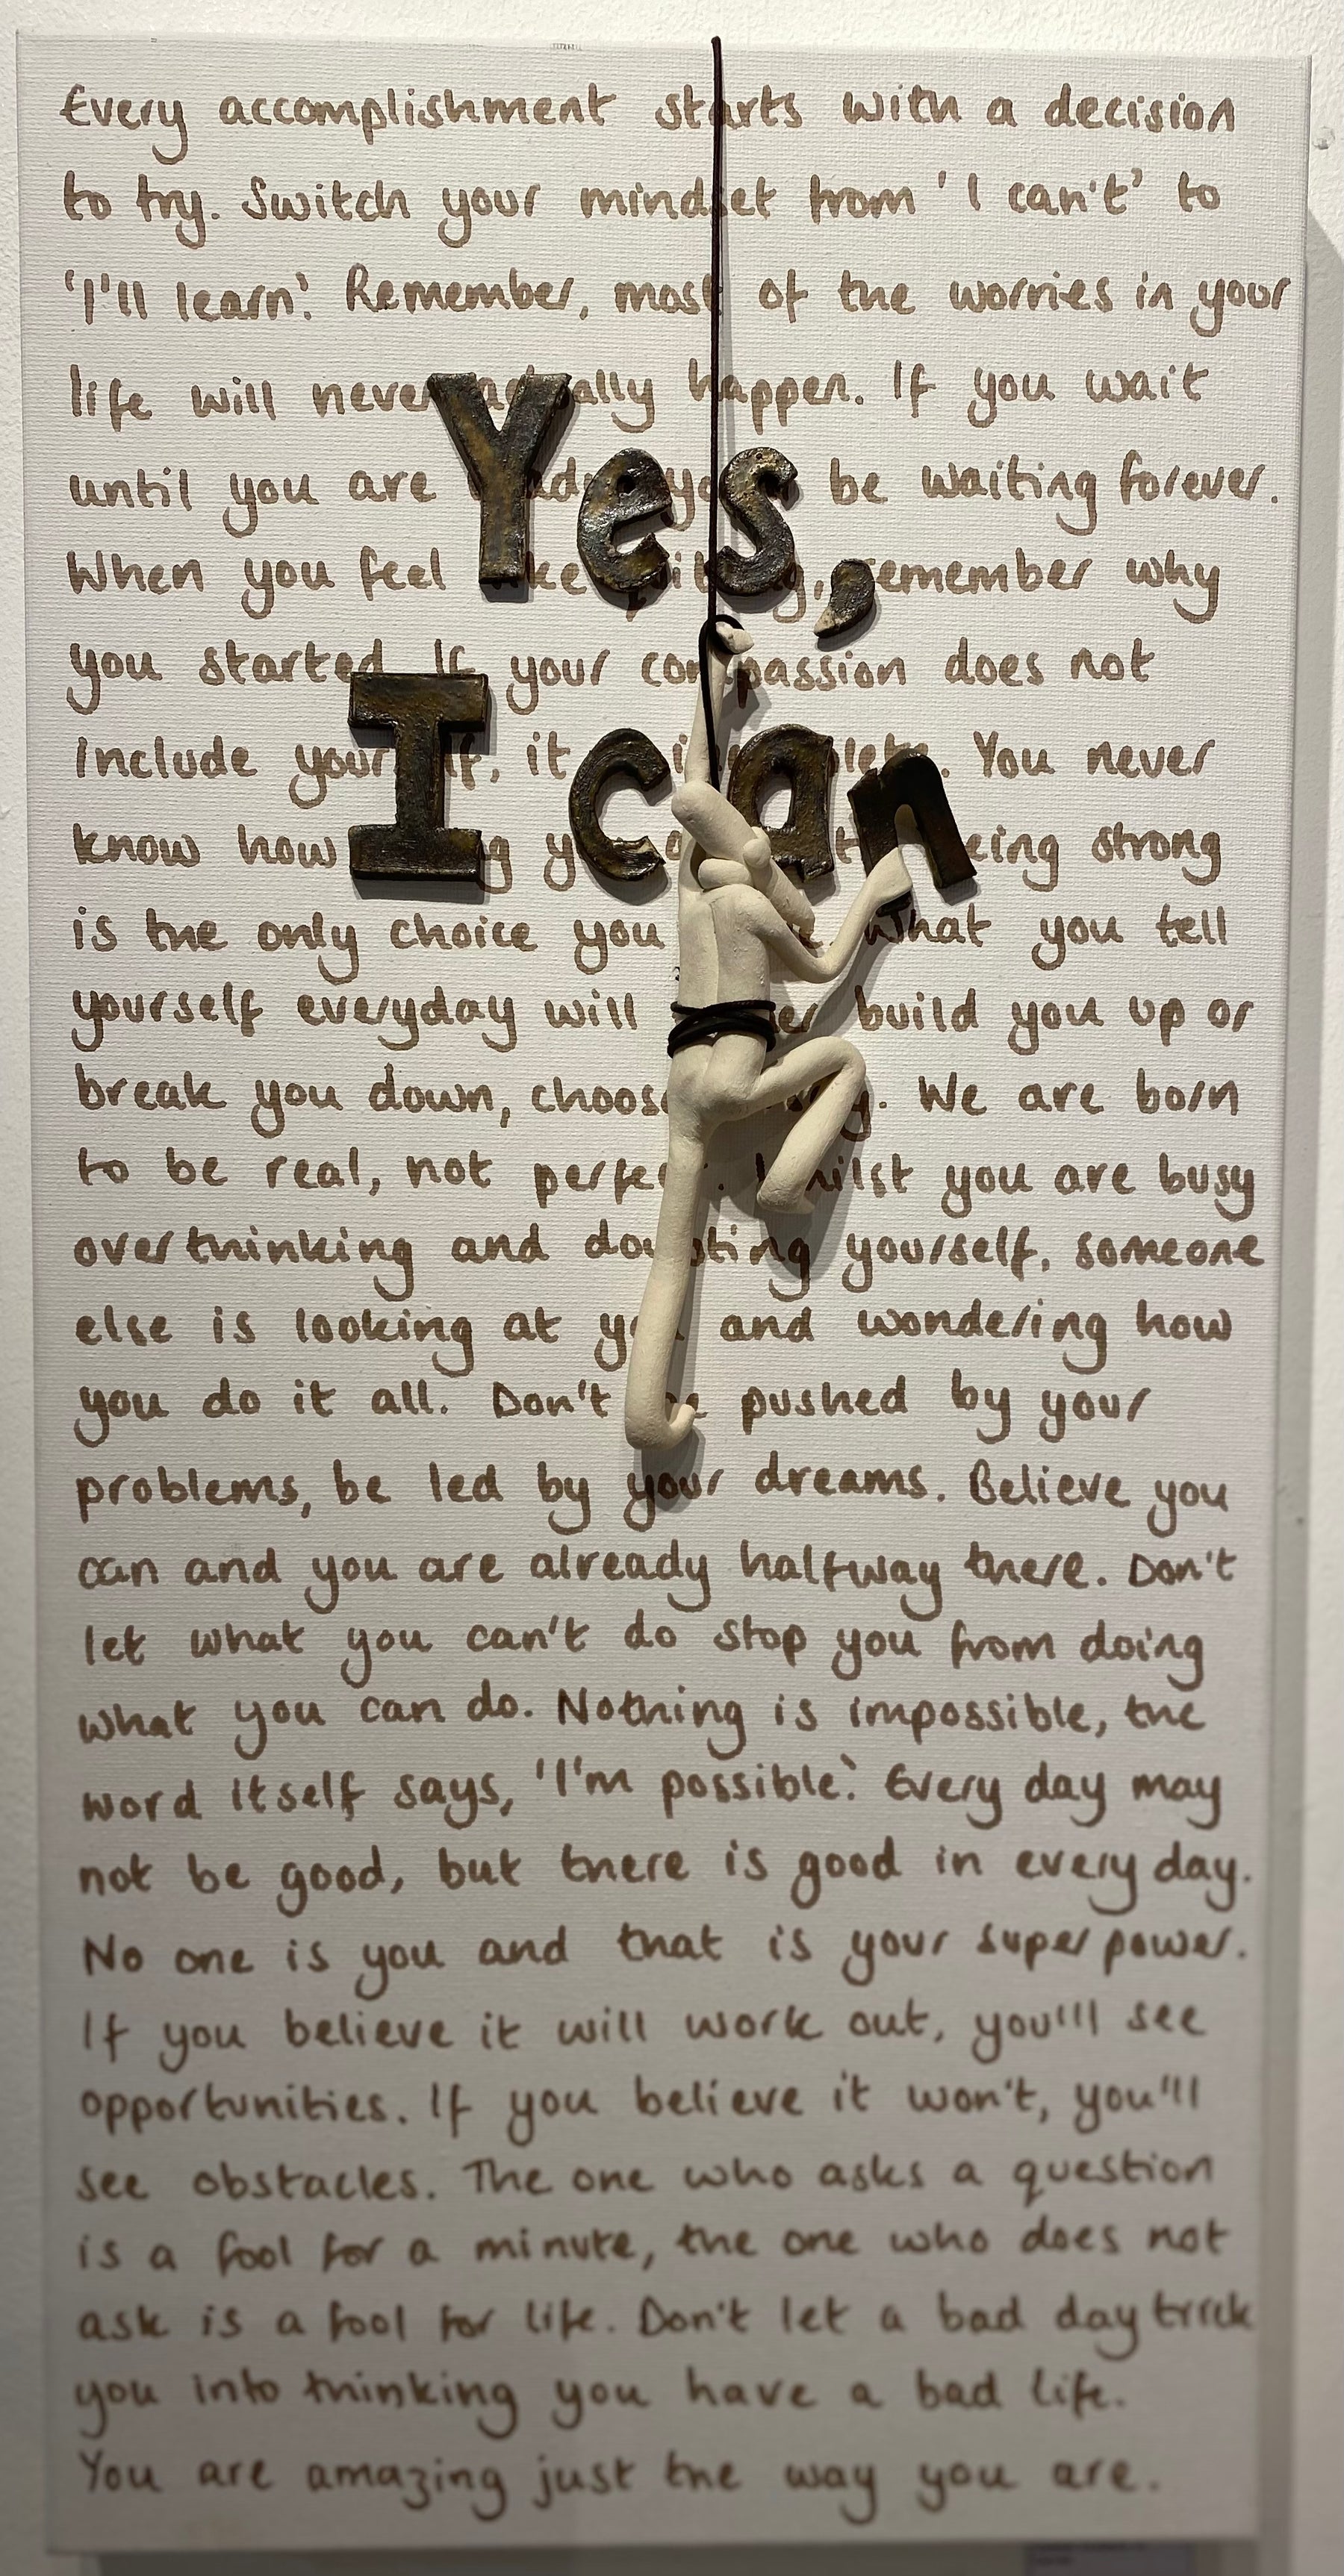 Every accomplishment starts with a decision
to try. Switch your mindset from 'I can't' to
'I'll learn'. Remember, most of the worries in your
life will never actually happen. If you wait
until you are ready, you'll be waiting forever.
When you feel like quitting, remember why
you started. If your compassion does not
include yourself, it is incomplete. You never
know how strong you are until being strong
is the only choice you have. What you tell
yourself everyday will either build you up or
break you down, choose wisely. We are born
to be real, not perfect. Whilst you are busy
overthinking and doubting yourself, someone
else is looking at you and wondering how
you do it all. Don't be pushed by your
problems, be led by your dreams. Believe you
can and you are already halfway there. Don't
let what you can't do stop you from doing
what you can do. Nothing is impossible, the
word itself says, 'I'm possible'. Every day may
not be good, but there is good in every day.
No one is you and that is your superpower.
If you believe it will work out, you'll see
opportunities. If you believe it won't, you'll
see obstacles. The one who asks a question
is a fool for a minute, the one who does not
ask is a fool for life. Don't let a bad day trick
you into thinking you have a bad life.
You are amazing just the way you are.
Yes,
I can